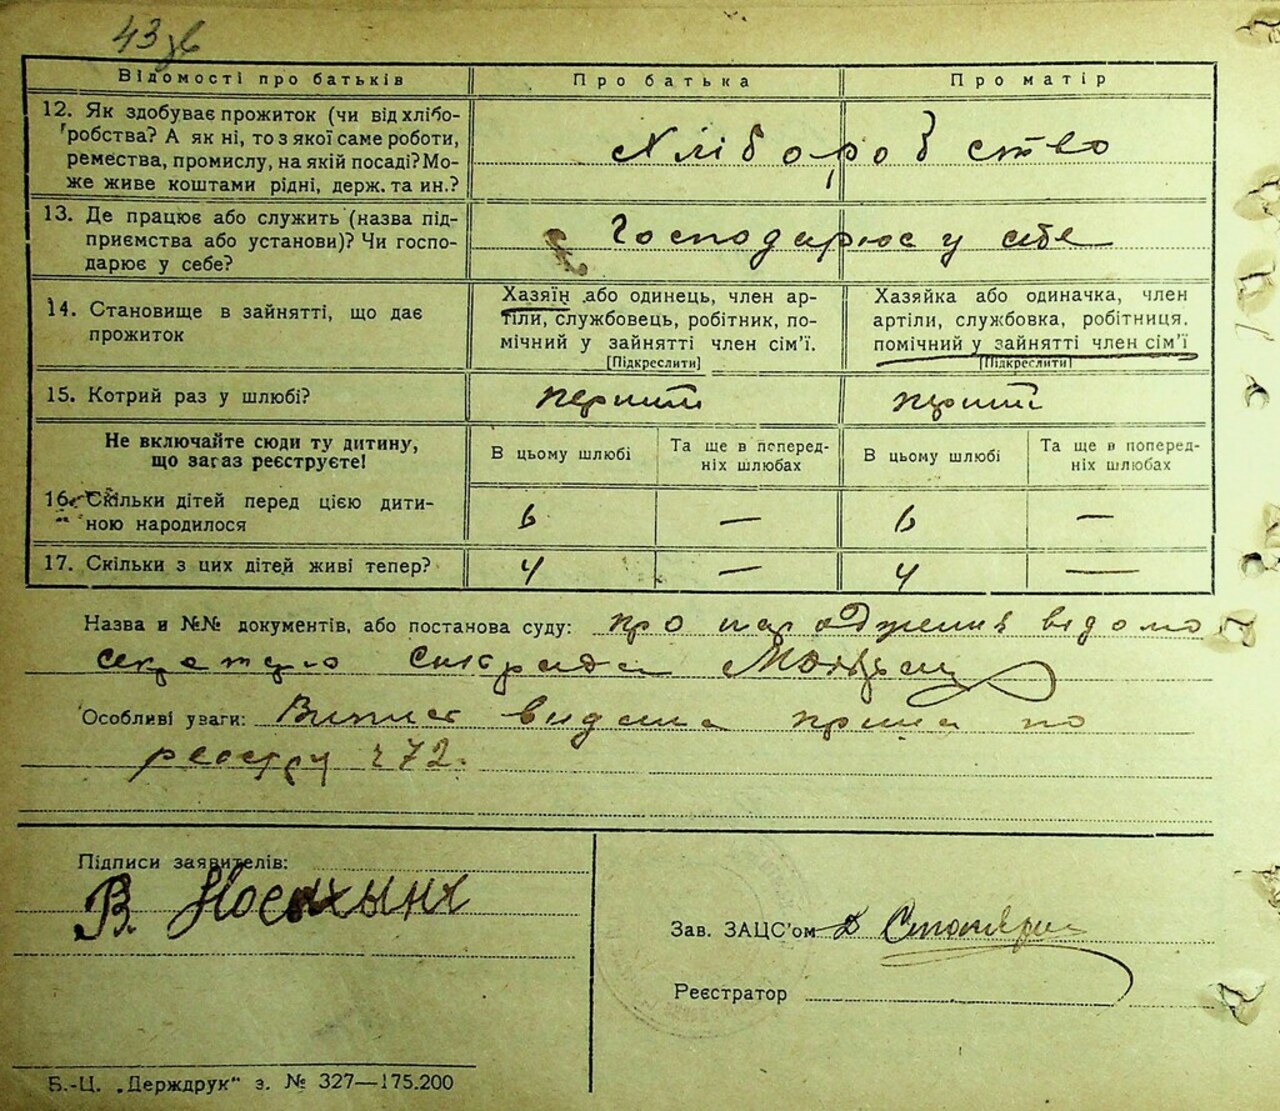 43 зв
Відомості про батьків
Про батька
Про матір
12. Як здобуває прожиток (чи від хлібо-
робства? А як ні, то з якої саме роботи,
ремества, промислу, на якій посаді? Мо-
же живе коштами рідні, держ. та ин.?
Хліборобство
13. Де працює або служить (назва під-
приємства або установи)? Чи госпо-
дарює у себе?
Господарює у себе
14. Становище в зайнятті, що дає
прожиток
Хазяїн або одинець, член ар-
тіли, службовець, робітник, по-
мічний у зайнятті член сім'ї.
[Підкреслити]
Хазяйка або одиначка, член
артіли, службовка, робітниця.
помічний у зайнятті член сім'ї
[Підкреслити]
15. Котрий раз у шлюбі?
перший
перший
Не включайте сюди ту дитину,
що загаз реєструєте!
В цьому шлюбі
Та ще в поперед-
ніх шлюбах
В цьому шлюбі
Та ще в попоред-
ніх шлюбах
16. Скільки дітей перед цією дити-
ною народилося
6 — 6 —
17. Скільки з цих дітей живі тепер?
4 — 4 —
Назва и №№ документів, або постанова суду: про народження відомо
секретарю сільради
Особливі уваги: Виписка видана
реєстру 272.
Підписи заявителів:
В.
Зав. ЗАЦС'ом
Реєстратор
Б.-Ц. „Держдрук" з. № 327—175.200